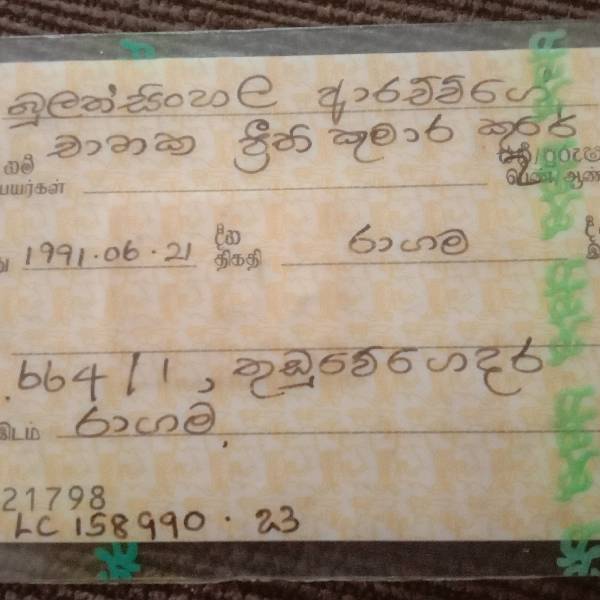 බුලත්සිංහල ආරච්චිගේ
චානක ප්‍රීති කුමාර කුරේ
නම්
பெயர்கள் பெண் ஆண்
1991.06.21 දීන රාගම
திகதி
664/1, කුඩුවේගෙදර
இடம் රාගම
21798
LC 158990. 23